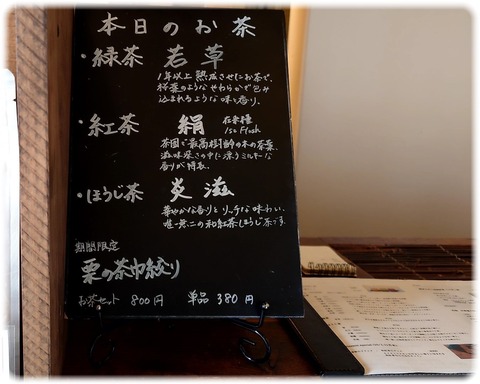 本日のお茶
・緑茶 若草
1年以上熟成させたお茶で、
若葉のようなやわらかで包み
込まれるような味と香り。
・紅茶 絹 在来種
1st Flush
茶園で最高樹齢の木の茶葉。
滋味深さの中に漂うミルキーな
香りが特長。
・ほうじ茶 炎滋
華やかな香りとリッチな味わい、
唯一無二の和紅茶ほうじ茶です。
期間限定
栗の茶巾絞り
お茶セット 800円 単品 380円